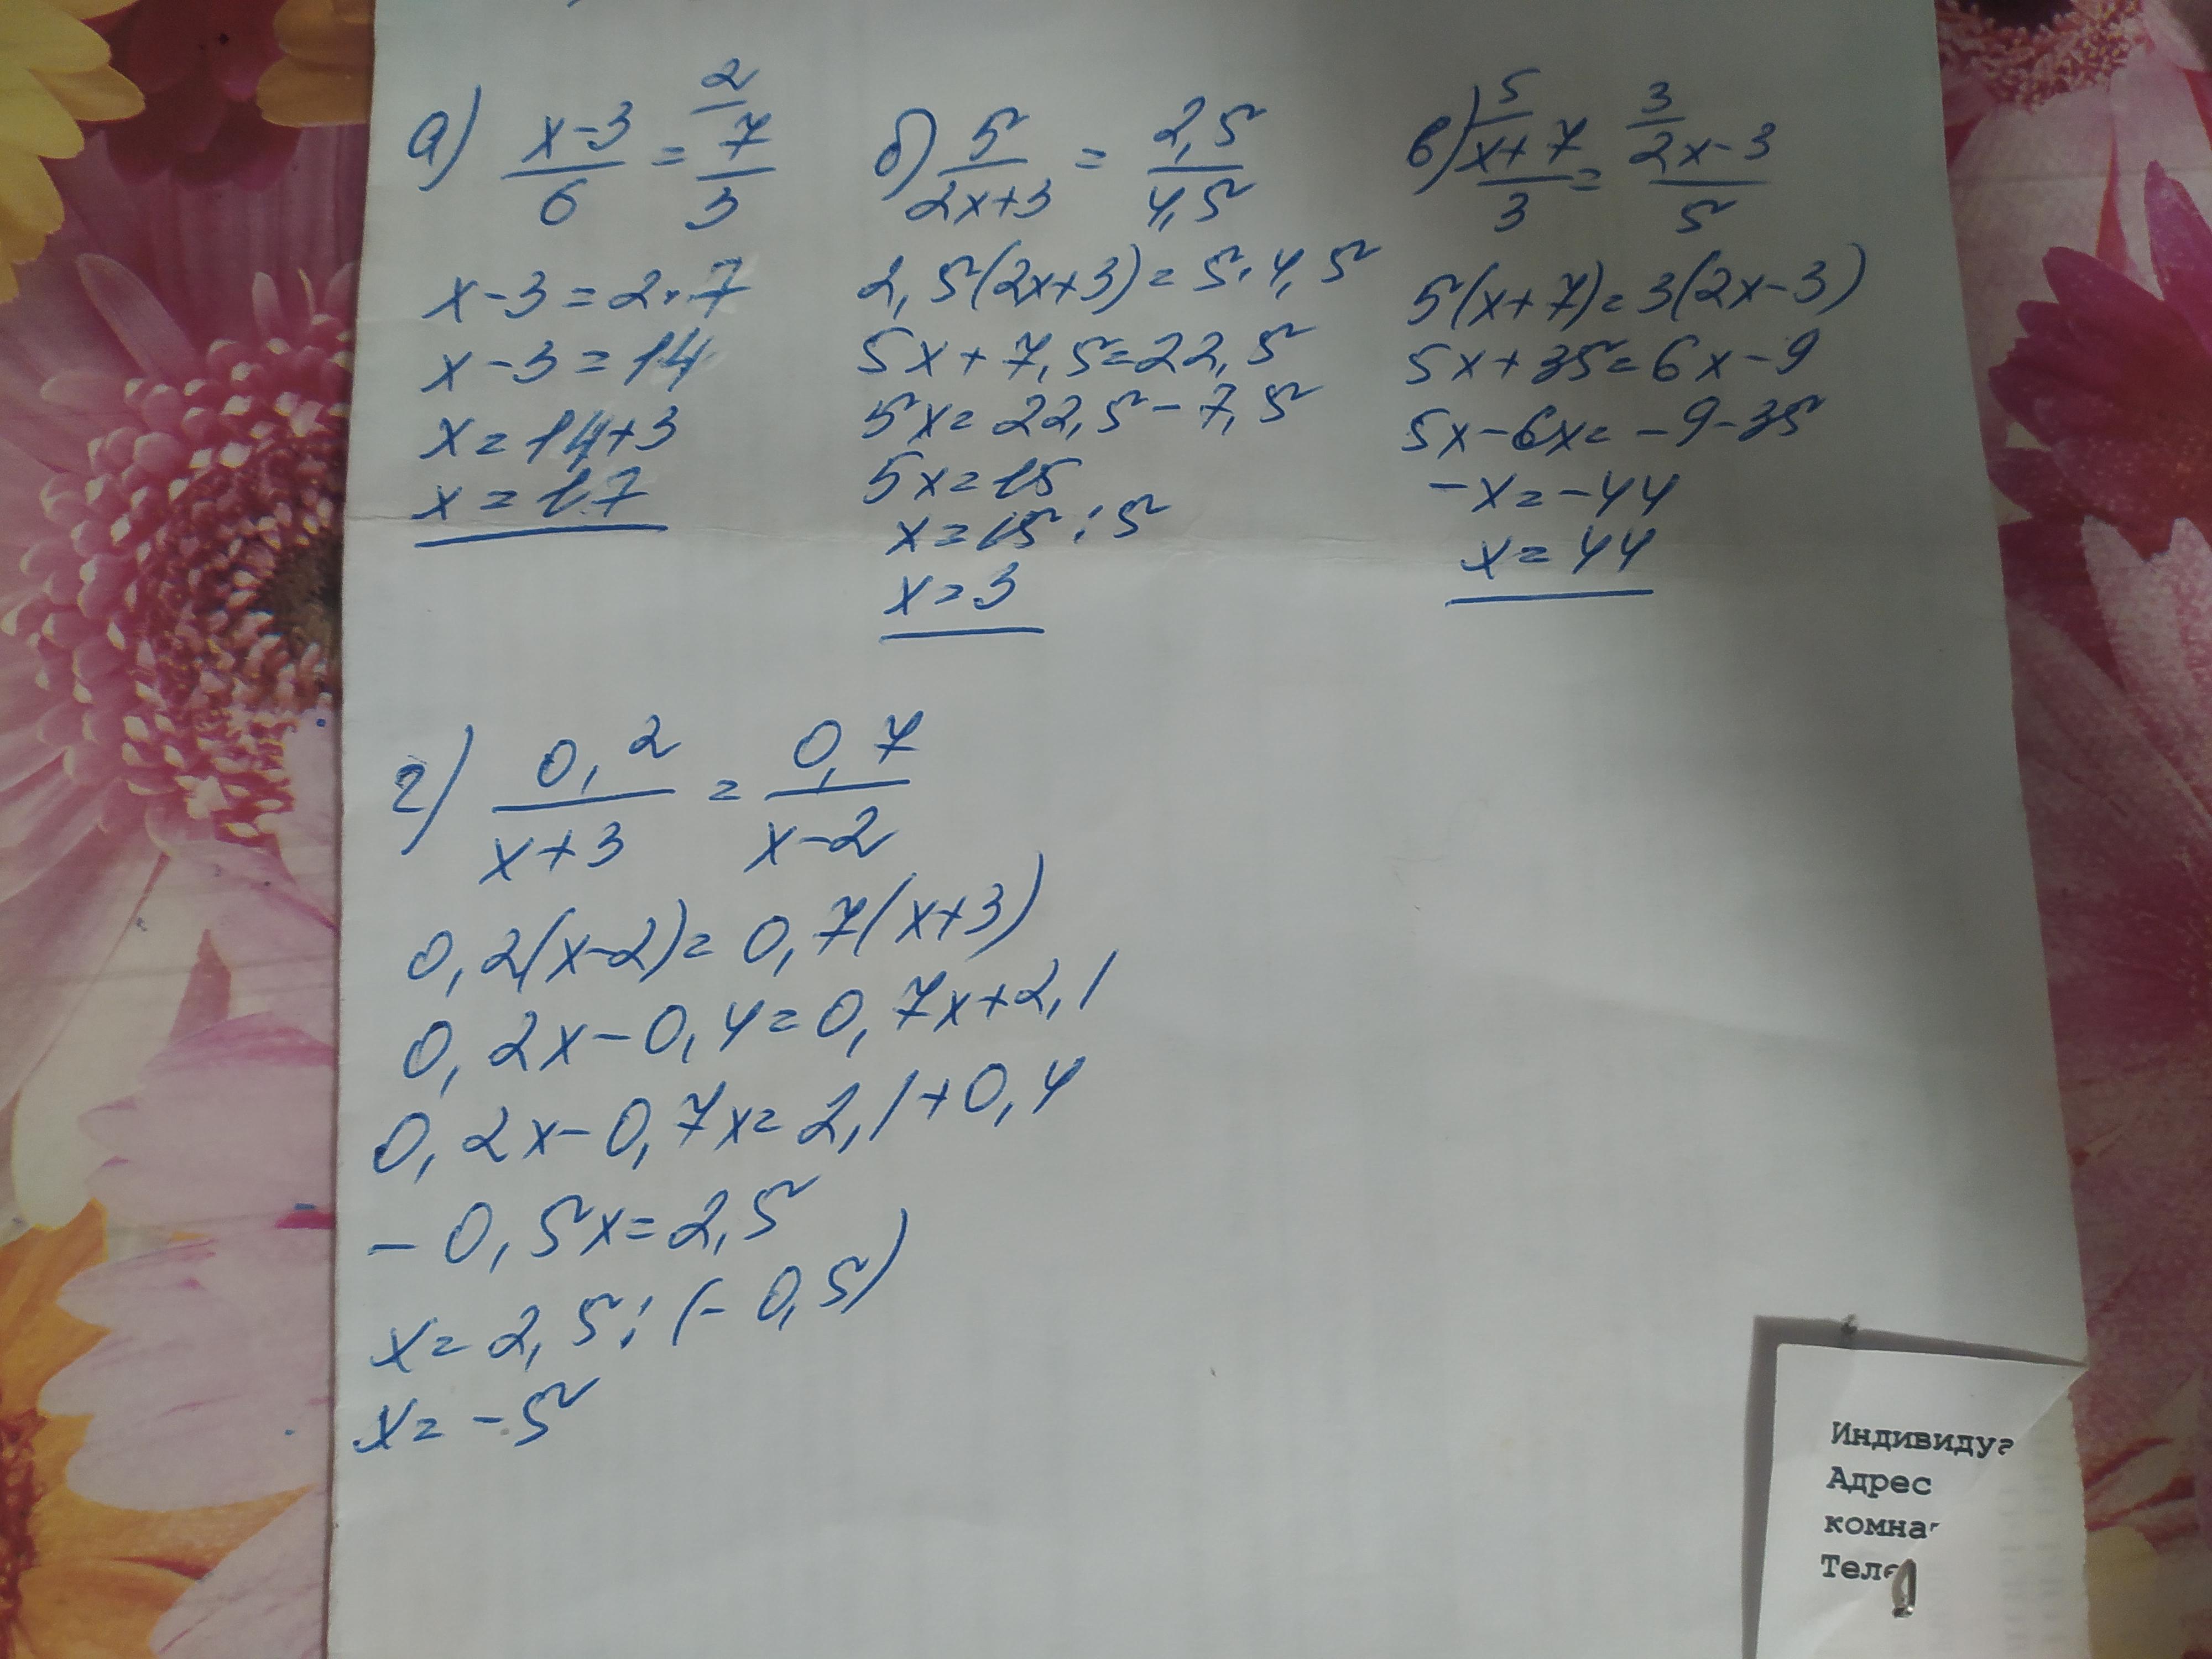 а) x-3/6 = 2/7/3
x-3=2·7
x-3=14
x=14+3
x=17
б) 5/2x+3 = 2,5/4,5
2,5(2x+3)=5·4,5
5x+7,5=22,5
5x=22,5-7,5
5x=15
x=15:5
x=3
в) 5/x+7/3 = 3/2x-3/5
5(x+7)=3(2x-3)
5x+35=6x-9
5x-6x=-9-35
-x=-44
x=44
г) 0,2/x+3 = 0,7/x-2
0,2(x-2)=0,7(x+3)
0,2x-0,4=0,7x+2,1
0,2x-0,7x=2,1+0,4
-0,5x=2,5
x=2,5:(-0,5)
x=-5
Индивиду
Адрес
комна
Теле